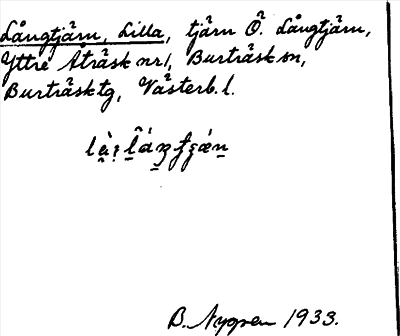 Långtjärn, Lilla, tjärn Ö. Långtjärn,
Yttre Åträsk nr 1, Burträsk sn,
Burträsk tg, Västerb. l.
B. Nygren 1933.